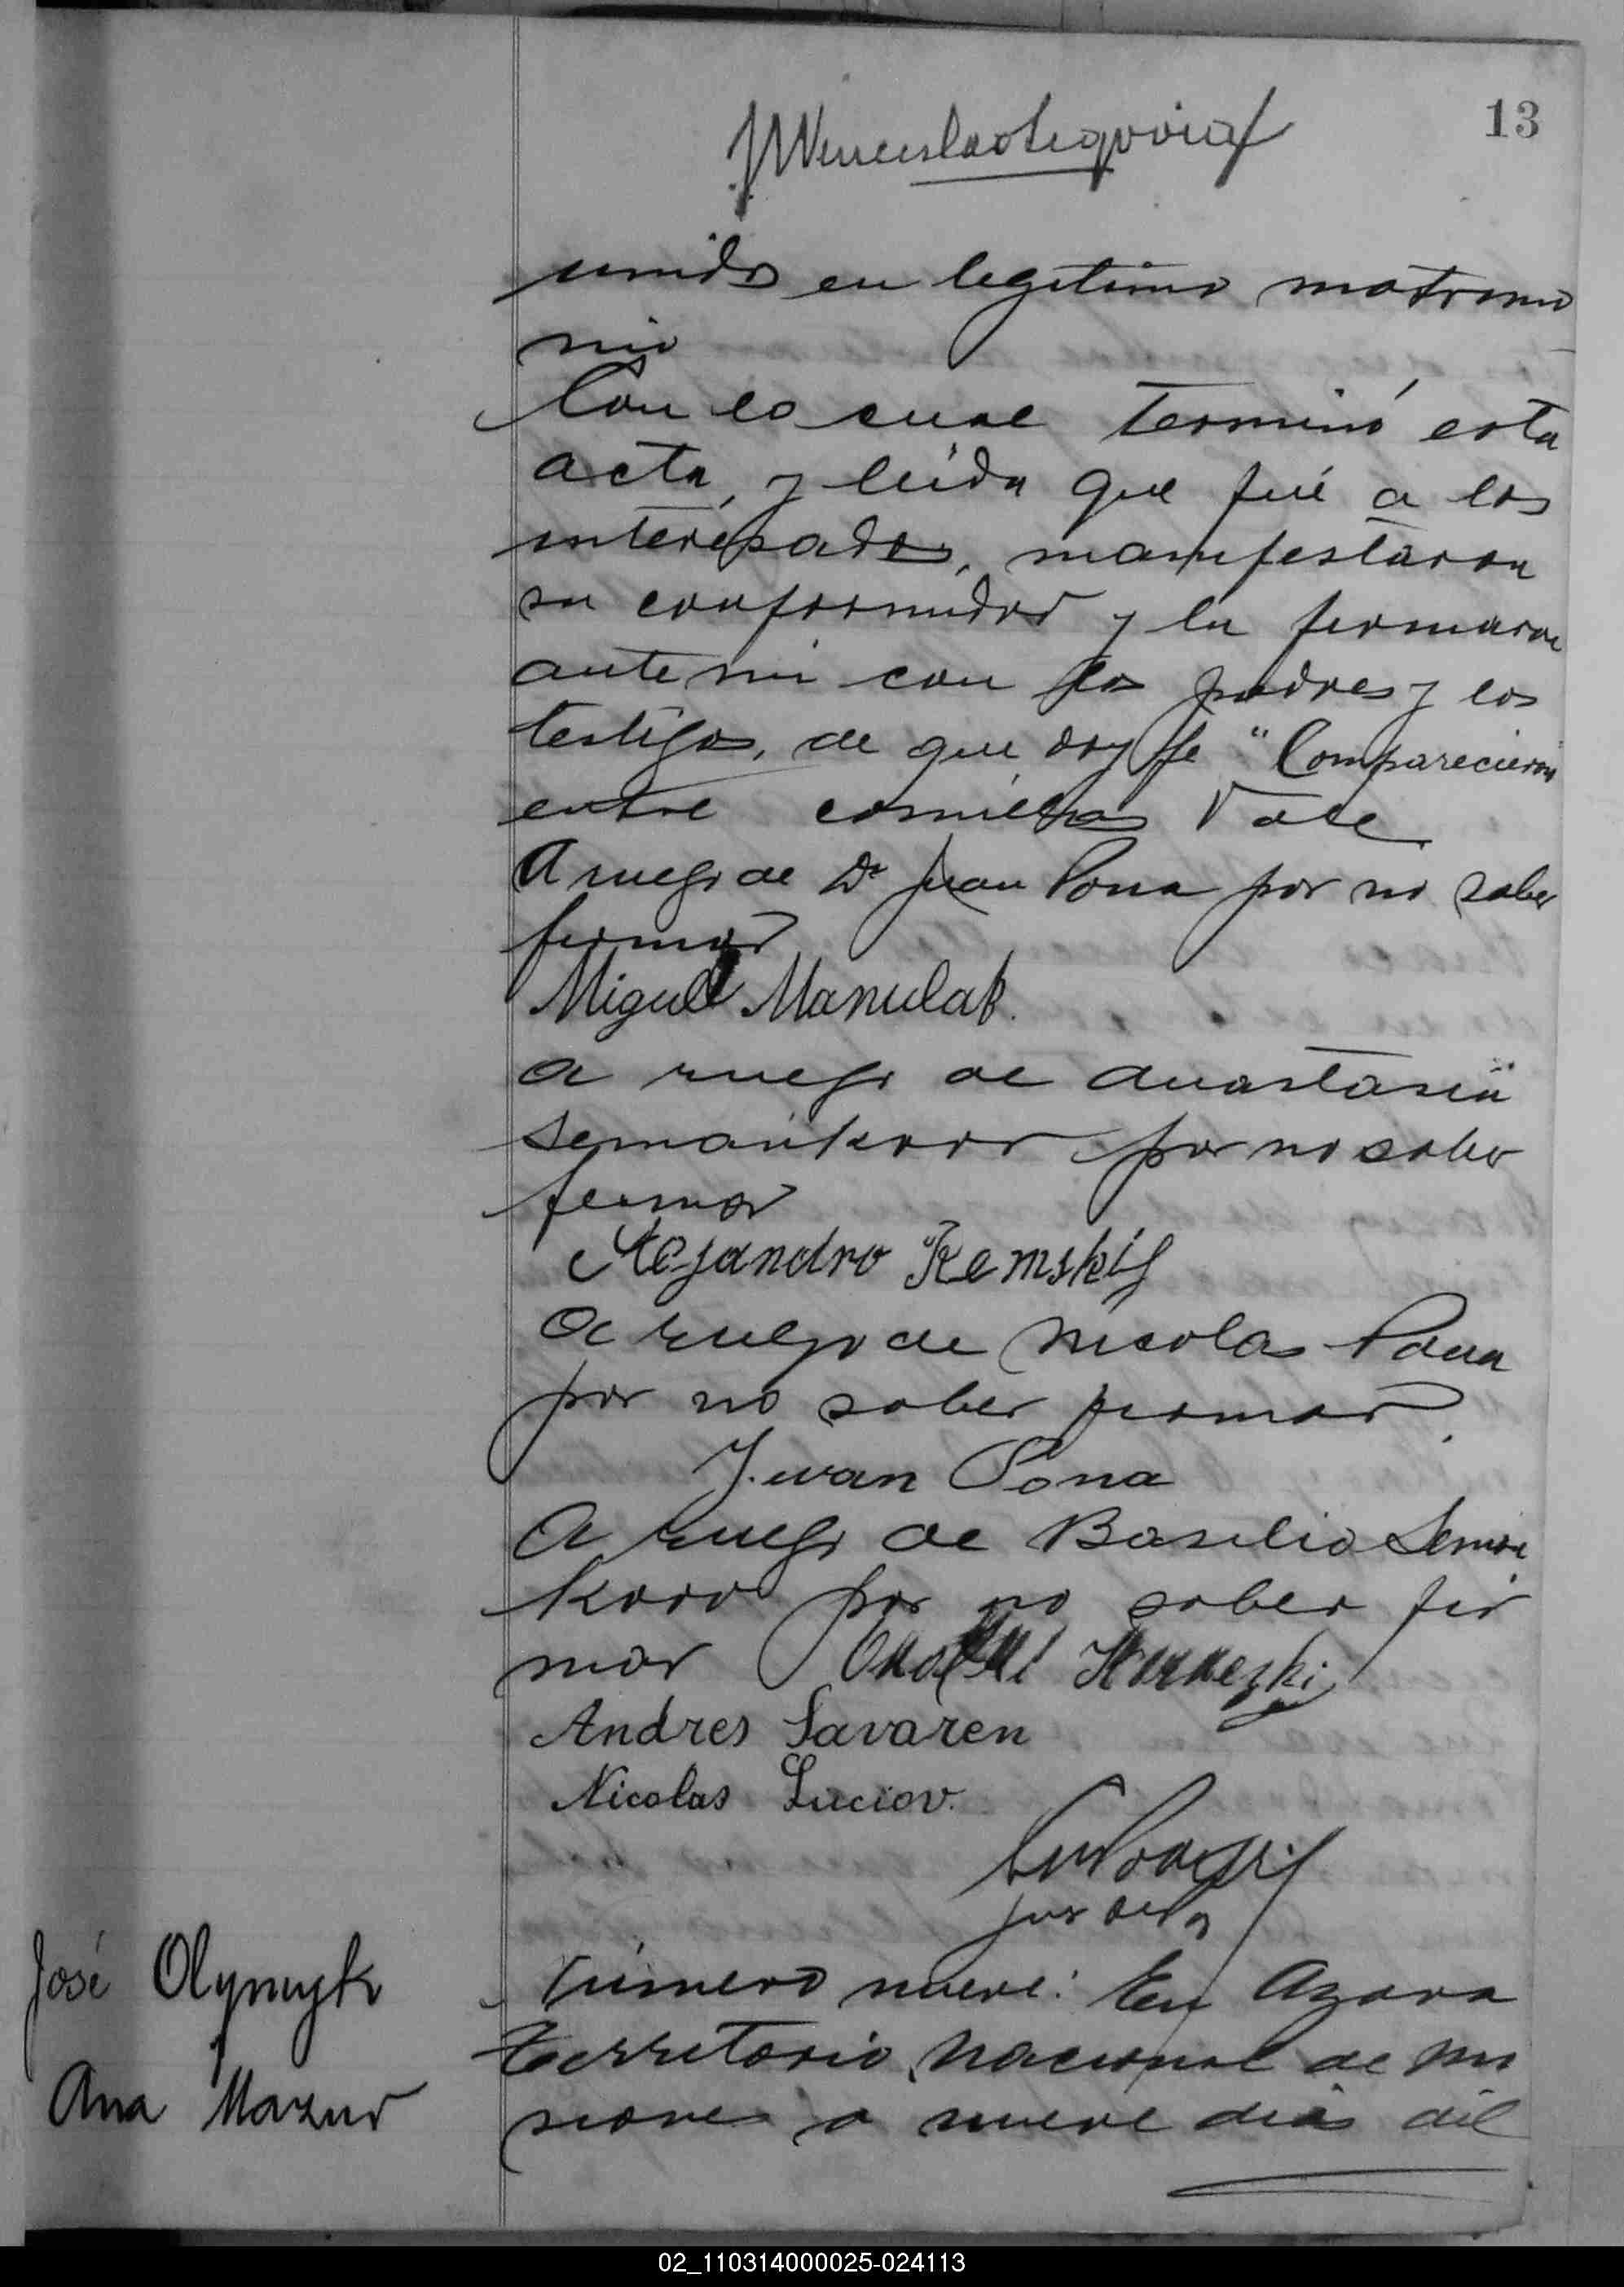 13
unidos en legitimo matrimo
nio
Con lo cual terminó esta
acta, y leida que fué a los
interesados, manifestaron
su conformidad y la firmaron
ante mi con los padres y los
testigos, de que doy fe "Comparecieron"
entre comillas Vale
A ruego de Dn Juan Pona por no saber
firmar
Miguel Manulak.
a ruego de Anastasia
Semañkoor por no saber
firmar
Alejandro Kemskij
a ruego de Nicolas Pona
por no saber firmar.
Iwan Pona
A ruego de Basilio Semañ
koor por no saber fir
mar
Andres Savaren
Nicolas Luciov.
José Olymyk
Ana Mazur
Número nueve: En Azara
Territorio Nacional de Mi
siones a nueve dias del
02_110314000025-024113